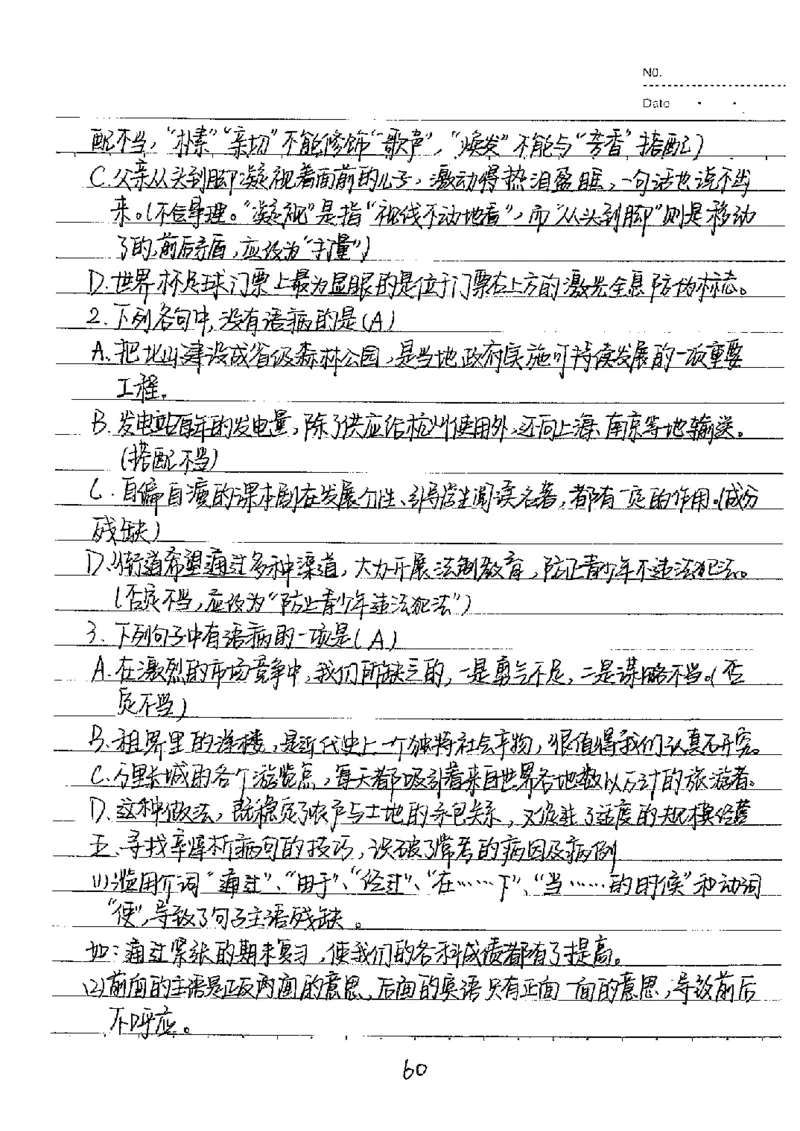 No.
Date
配不当，“朴素”“亲切”不能修饰“歌声”，“焕发”不能与“芳香”搭配）
C.父亲从头到脚凝视着面前的儿子，激动得热泪盈眶，一句话也说不出
来。（不合事理。“凝视”是指“视线不动地看”，而“从头到脚”则是移动
了的，前后矛盾，应改为“打量”）
D.世界杯足球门票上最为显眼的是位于门票右上方的激光全息防伪标志。
2.下列各句中，没有语病的是（A）
A.把北山建设成省级森林公园，是当地政府实施可持续发展的一项重要
工程。
B.发电站每年的发电量，除了供应给杭州使用外，还向上海、南京等地输送。
（搭配不当）
C.自编自演的课本剧在发展个性、引导学生阅读名著，都有一定的作用。（成分
残缺）
D.街道希望通过多种渠道，大力开展法制教育，防止青少年不违法犯法。
（否定不当，应改为“防止青少年违法犯法”）
3.下列句子中有语病的一项是（A）
A.在激烈的市场竞争中，我们所缺乏的，一是勇气不足，二是谋略不当。（否
定不当）
B.租界里的洋楼，是近代史上一个独特社会产物，很值得我们认真研究。
C.万里长城的各个游览点，每天都吸引着来自世界各地数以万计的旅游者。
D.这种做法，既稳定了农户与土地的承包关系，又促进了适度的规模经营
五、寻找辛辣析病句的技巧，识破了常考的病因及病例
(1)滥用介词“通过”、“由于”、“经过”、“在……下”、“当……的时候”和动词
“使”，导致了句子主语残缺。
如：通过紧张的期末复习，使我们的各科成绩都有了提高。
(2)前面的主语是正反两面的意思，后面的宾语只有正面一面的意思，导致前后
不呼应。
60